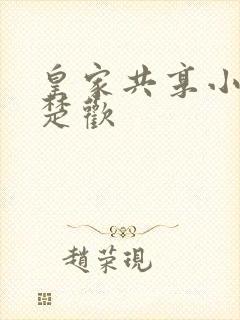 皇家共享小
楚歡
趙荣現